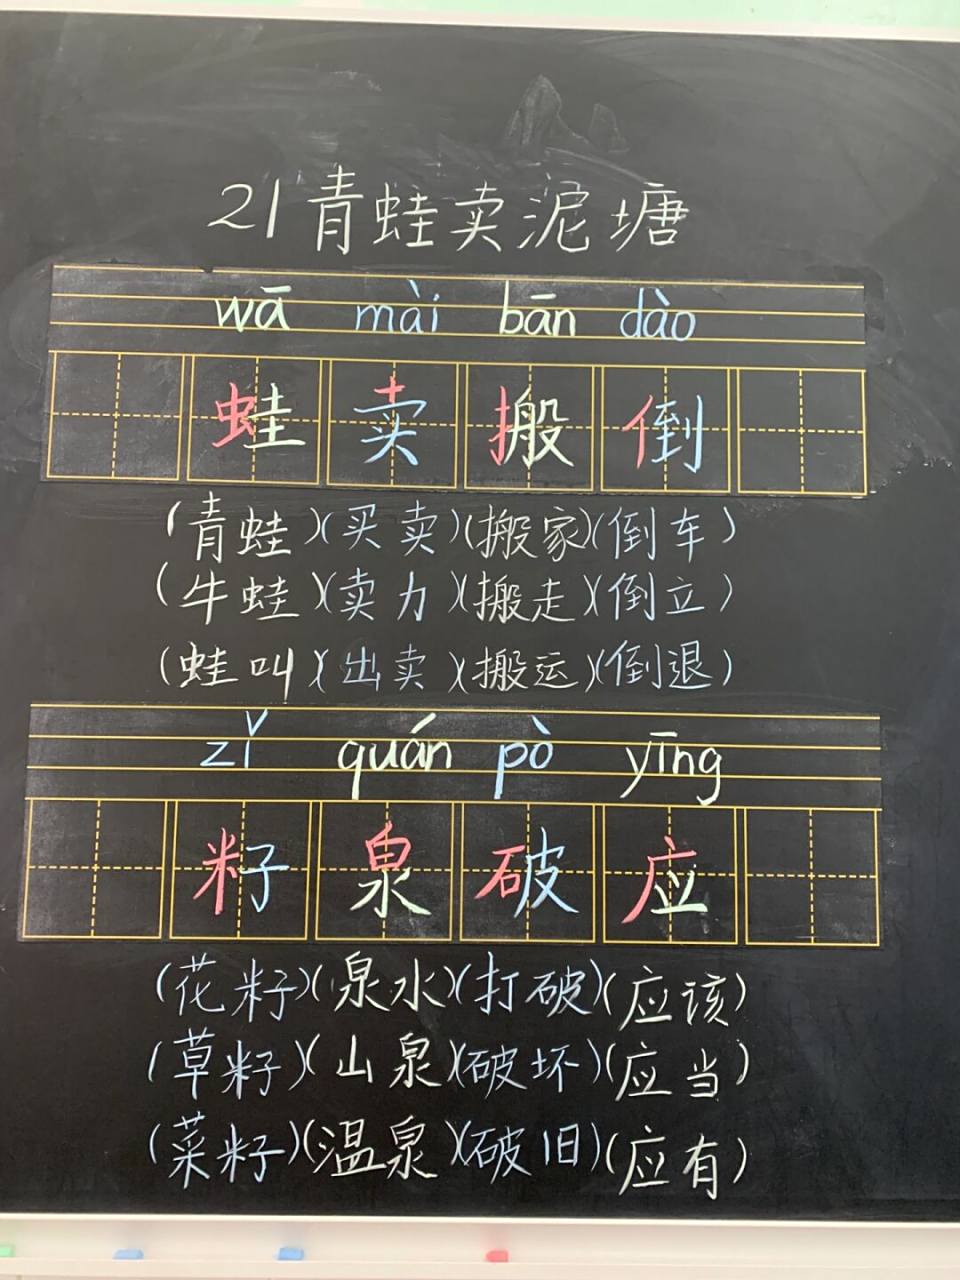 21青蛙卖泥塘
wā mài bān dào
蛙 卖 搬 倒
(青蛙)(买卖)(搬家)(倒车)
(牛蛙)(卖力)(搬走)(倒立)
(蛙叫)(出卖)(搬运)(倒退)
zǐ quán pò yīng
籽 泉 破 应
(花籽)(泉水)(打破)(应该)
(草籽)(山泉)(破坏)(应当)
(菜籽)(温泉)(破旧)(应有)